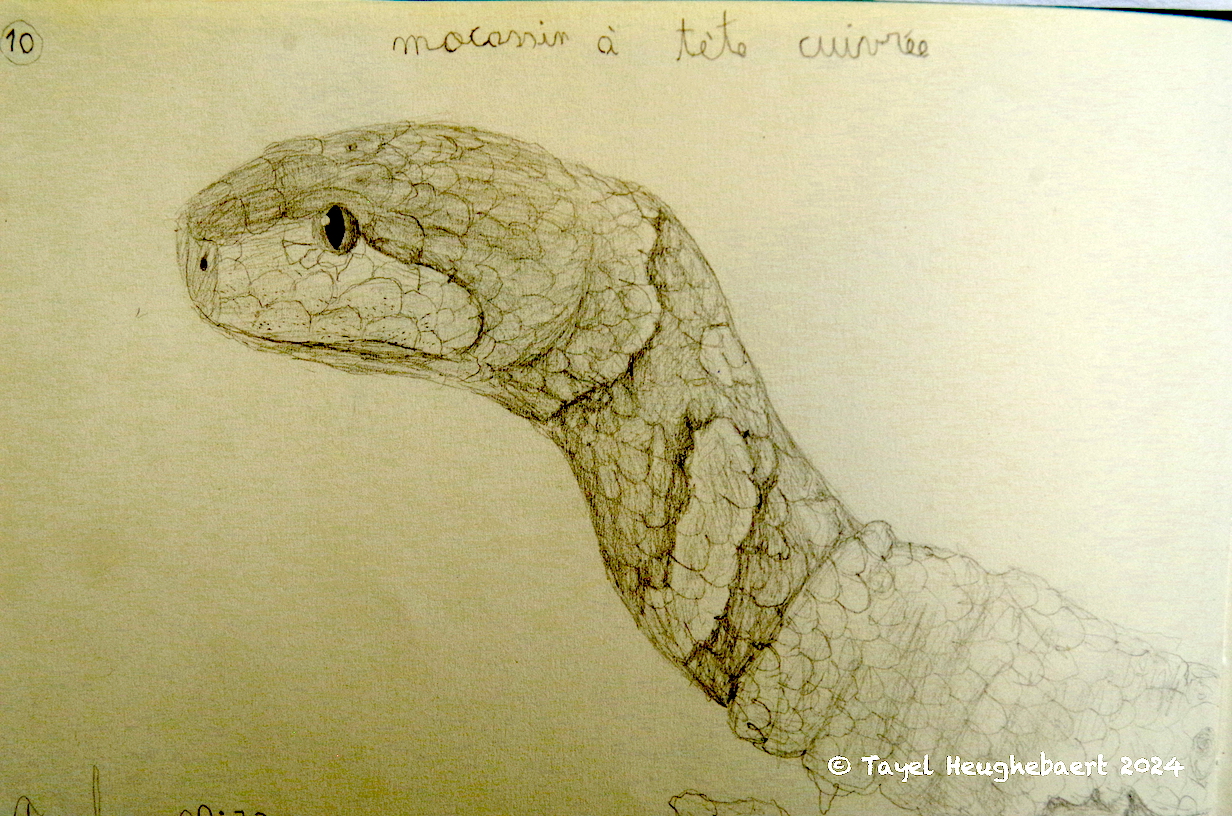 10
mocassin à tête cuivrée
© Tayel Heughebaert 2024